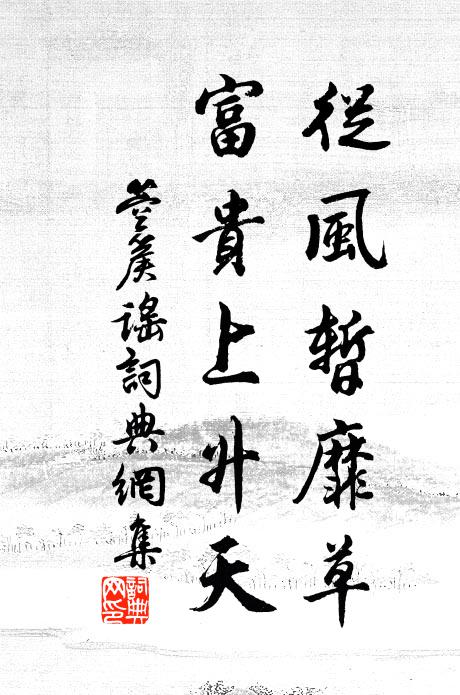 從風暫靡草
富貴上升天
箜篌謠詞典網集
詞典
网印